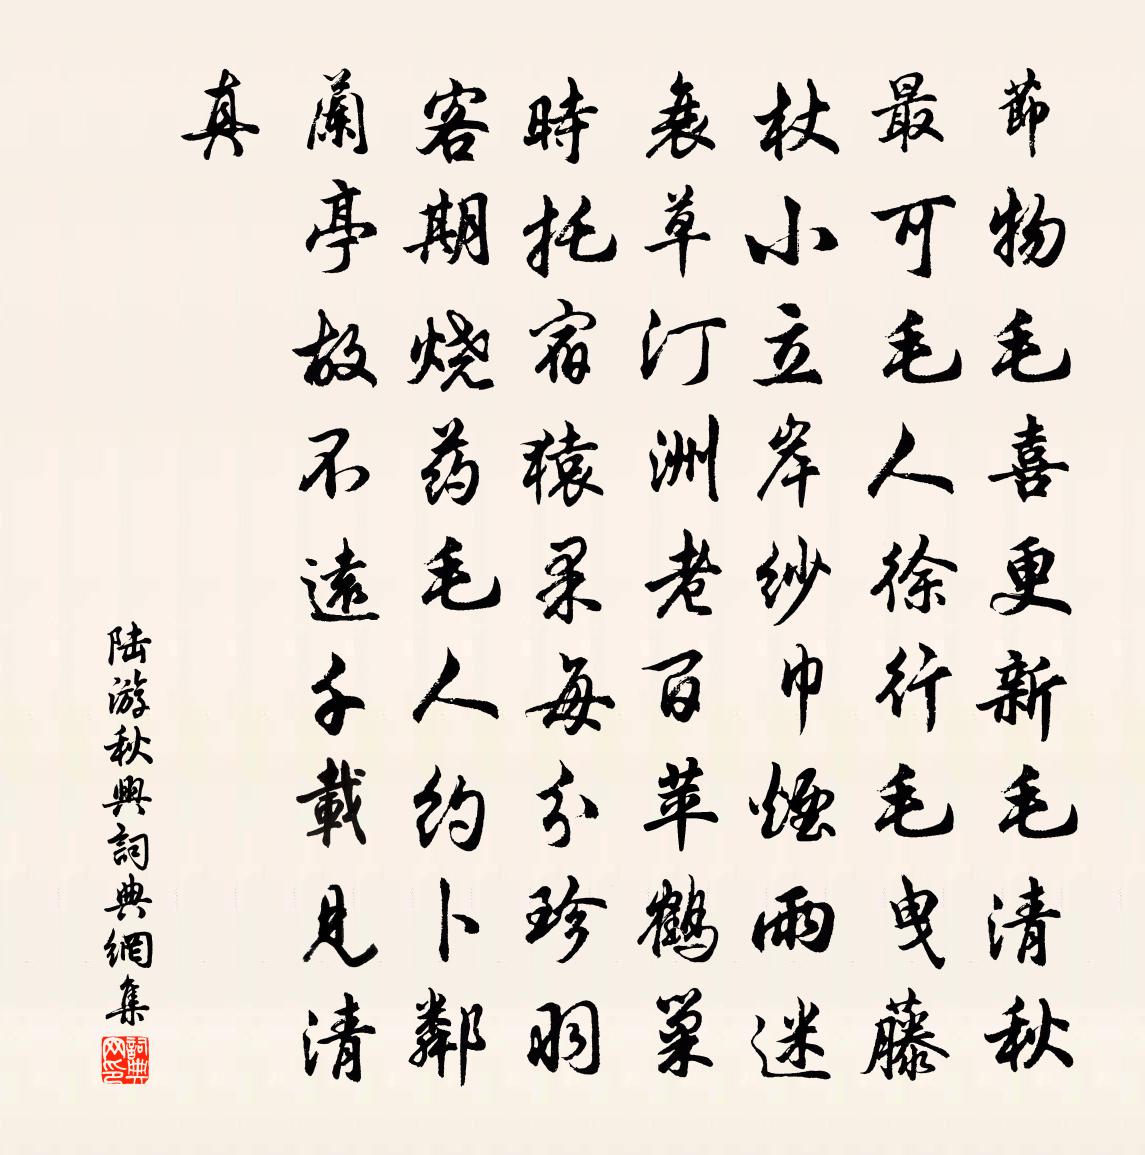 節物毛喜更新毛清秋
最可毛人徐行毛曳藤
杖小立岸紗巾煙雨迷
衰草汀洲老百苹鶴巢
時托宿猿果每分珍羽
客期烧药毛人約卜鄰
蘭亭故不遠千載見清
真
陆游秋興詞典網集
詞典网印